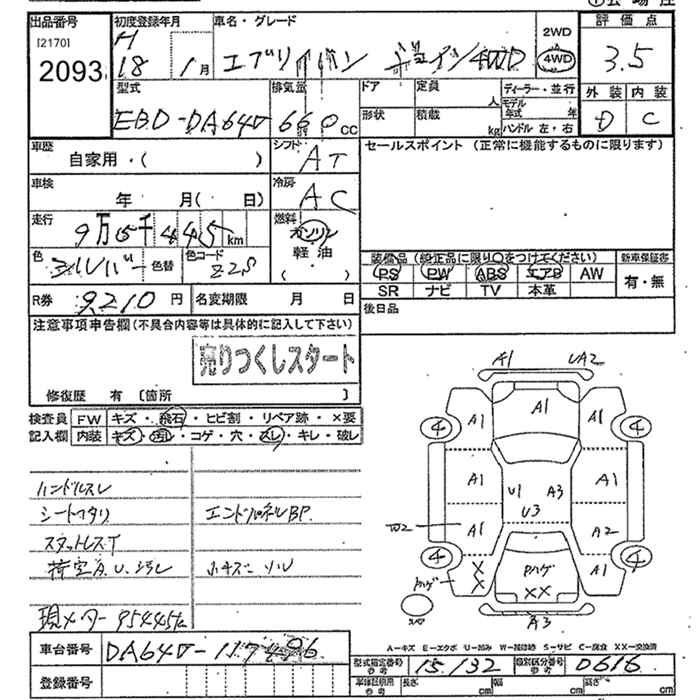 出品番号
[2170]
2093
初度登録年月
H
18 1月
車名・グレード
エブリイバン ジョイン 4WD
2WD
4WD
評価点
3.5
外装 内装
D C
型式
EBD-DA64V
排気量
660cc
ドア
形状
定員
人
積載
kg
ディーラー・並行
モデル
年式 年
ハンドル 左・右
車歴
自家用・( )
シフト
AT
セールスポイント (正常に機能するものに限ります)
車検
年 月( 日)
冷房
AC
走行
9万5千445km
燃料
ガソリン
軽油
( )
色
シルバー
色替
色コード
Z2S
装備品 (純正品に限り○をつけてください)
PS PW ABS エアB AW
SR ナビ TV 本革
新車保証書
有・無
R券 9210円
名変期限 月 日
後日品
注意事項申告欄(不具合内容等は具体的に記入して下さい)
売りつくしスタート
修復歴 有 〔箇所 〕
検査員
記入欄
FW キズ・飛石・ヒビ割・リペア跡・×要
内装 キズ・汚れ・コゲ・穴・スレ・キレ・破レ
ハンドルスレ
シートヘタリ
エンドパネルBP.
スタットレスT
荷室A.U.汚レ
現メーター 95445km
車台番号
DA64V-117496
登録番号
A1 UA2
A1
4 A1 A1 4
A1 U1 A3 A1
U3
A1 A2
4 4
X
X
ハゲ
XX
A1
ハゲ
A3
A-キズ E-エクボ U-凹み W-補修跡 S-サビ C-腐食 XX-交換済
型式指定番号
参考
15132
類別区分番号
参考
0616
車体証明用
参考
長さ cm
幅 cm
高さ cm